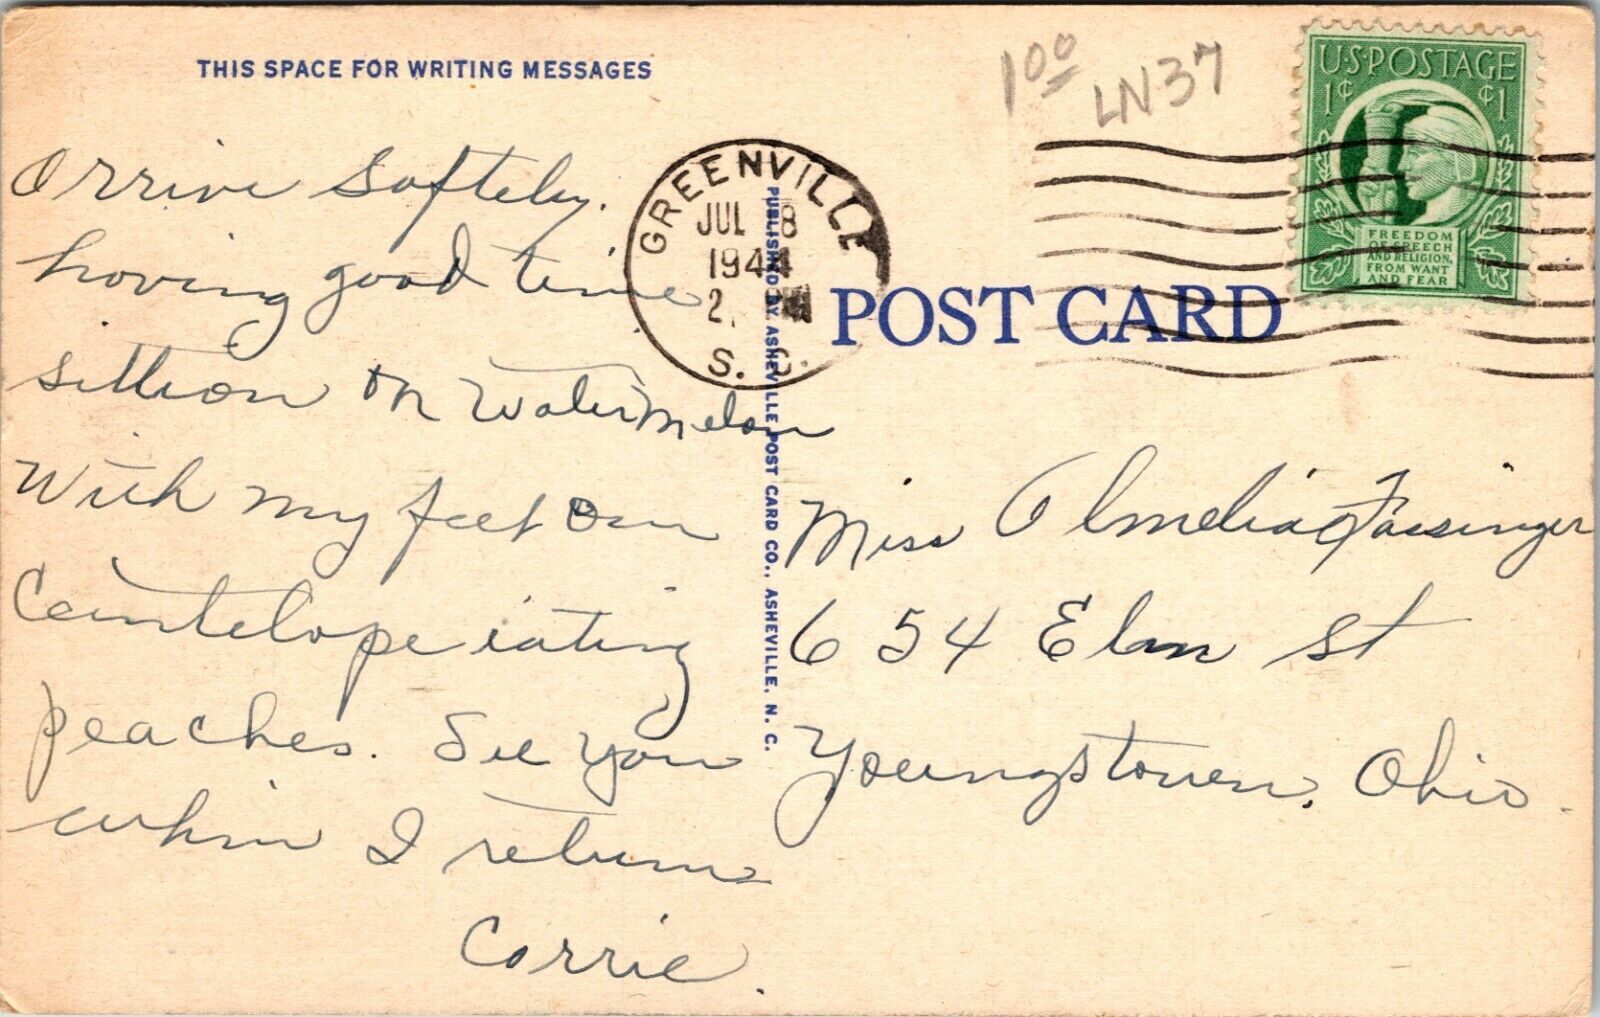 THIS SPACE FOR WRITING MESSAGES
1 00
LN37
U.S. POSTAGE
1¢ ¢1
FREEDOM
OF SPEECH
AND RELIGION,
FROM WANT
AND FEAR
GREENVILLE
JUL 8
1944
2
S. C.
POST CARD
PUBLISHED BY ASHEVILLE POST CARD CO., ASHEVILLE, N. C.
Arrive Saftely.
having good time
sittion on Watermelon
With my feet on
Cantelope eating
peaches. See you
when I return
Corrie.
Miss Almelia Fassinger
654 Elm St
Youngstown, Ohio.